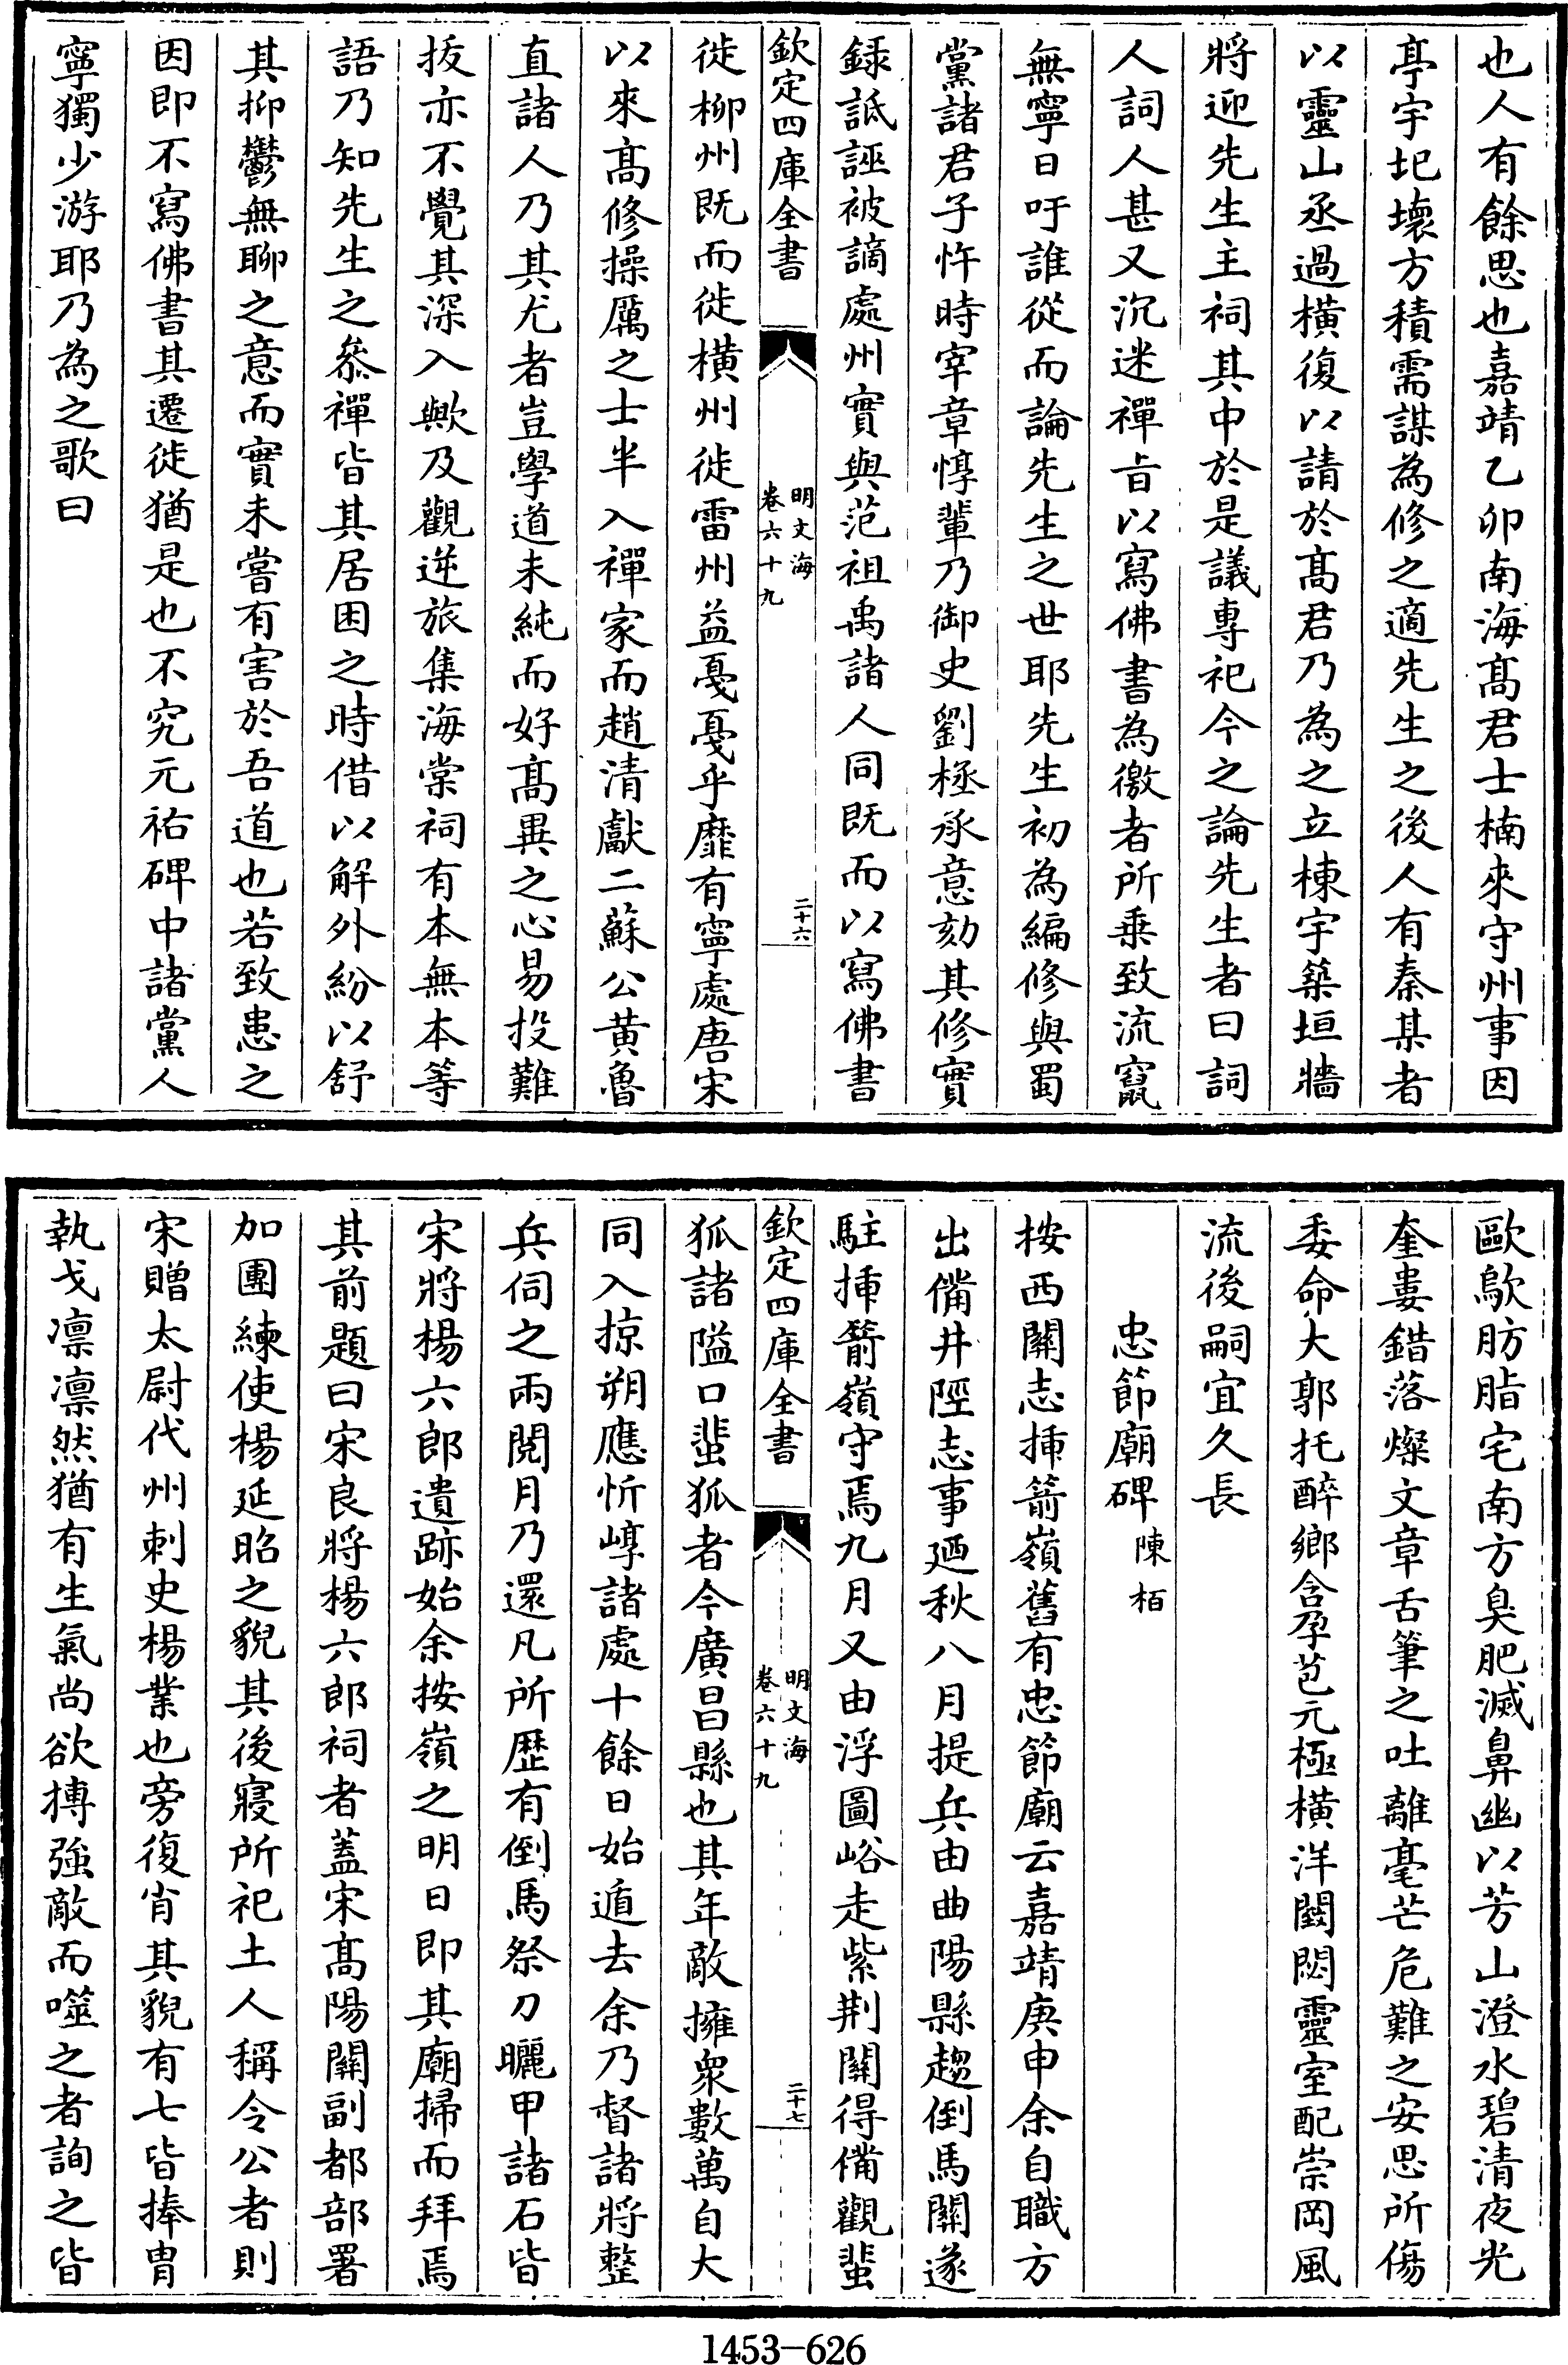 也人有餘思也嘉靖乙卯南海髙君士楠來守州事因
亭宇圮壞方積需謀為修之適先生之後人有秦某者
以靈山丞過橫復以請於髙君乃為之立棟宇築垣牆
將迎先生主祠其中於是議專祀今之論先生者曰詞
人詞人甚又沉迷禪㫖以寫佛書為徼者所乗致流竄
無寧日吁誰從而論先生之世耶先生初為編修與蜀
黨諸君子忤時宰章惇輩乃御史劉極承意劾其修實
録詆誣被謫處州實與范祖禹諸人同既而以寫佛書
欽定四庫全書
明文海
卷六十九
二十六
徙柳州既而徙横州徙雷州益戞戞乎靡有寧處唐宋
以來髙修操厲之士半入禪家而趙清獻二蘇公黄魯
直諸人乃其尤者豈學道未純而好髙異之心易投難
拔亦不覺其深入歟及觀逆旅集海棠祠有本無本等
語乃知先生之叅禪皆其居困之時借以解外紛以舒
其抑鬱無聊之意而實未嘗有害於吾道也若致患之
因即不寫佛書其遷徙猶是也不究元祐碑中諸黨人
寧獨少游耶乃為之歌曰
歐歍肪脂宅南方臭肥滅鼻幽以芳山澄水碧清夜光
奎婁錯落燦文章舌筆之吐離毫芒危難之安思所傷
委命大郭托醉鄉含孕芑元極橫洋闘閎靈室配崇岡風
流後嗣宜久長
忠節廟碑陳栢
按西關志揷箭嶺舊有忠節廟云嘉靖庚申余自職方
出備井陘志事廼秋八月提兵由曲陽縣趨倒馬關遂
駐揷箭嶺守焉九月又由浮圖峪走紫荆關得備觀蜚
欽定四庫全書
明文海
卷六十九
二十七
狐諸隘口蜚狐者今廣昌縣也其年敵擁衆數萬自大
同入掠朔應忻崞諸處十餘日始遁去余乃督諸將整
兵伺之兩閱月乃還凡所歴有倒馬祭刀曬甲諸石皆
宋將楊六郎遺跡始余按嶺之明日即其廟掃而拜焉
其前題曰宋良將楊六郎祠者蓋宋髙陽關副都部署
加團練使楊延昭之貌其後寢所祀土人稱令公者則
宋贈太尉代州刺史楊業也旁復肖其貌有七皆捧胄
執戈凛凛然猶有生氣尚欲搏強敵而噬之者詢之皆
1453-626